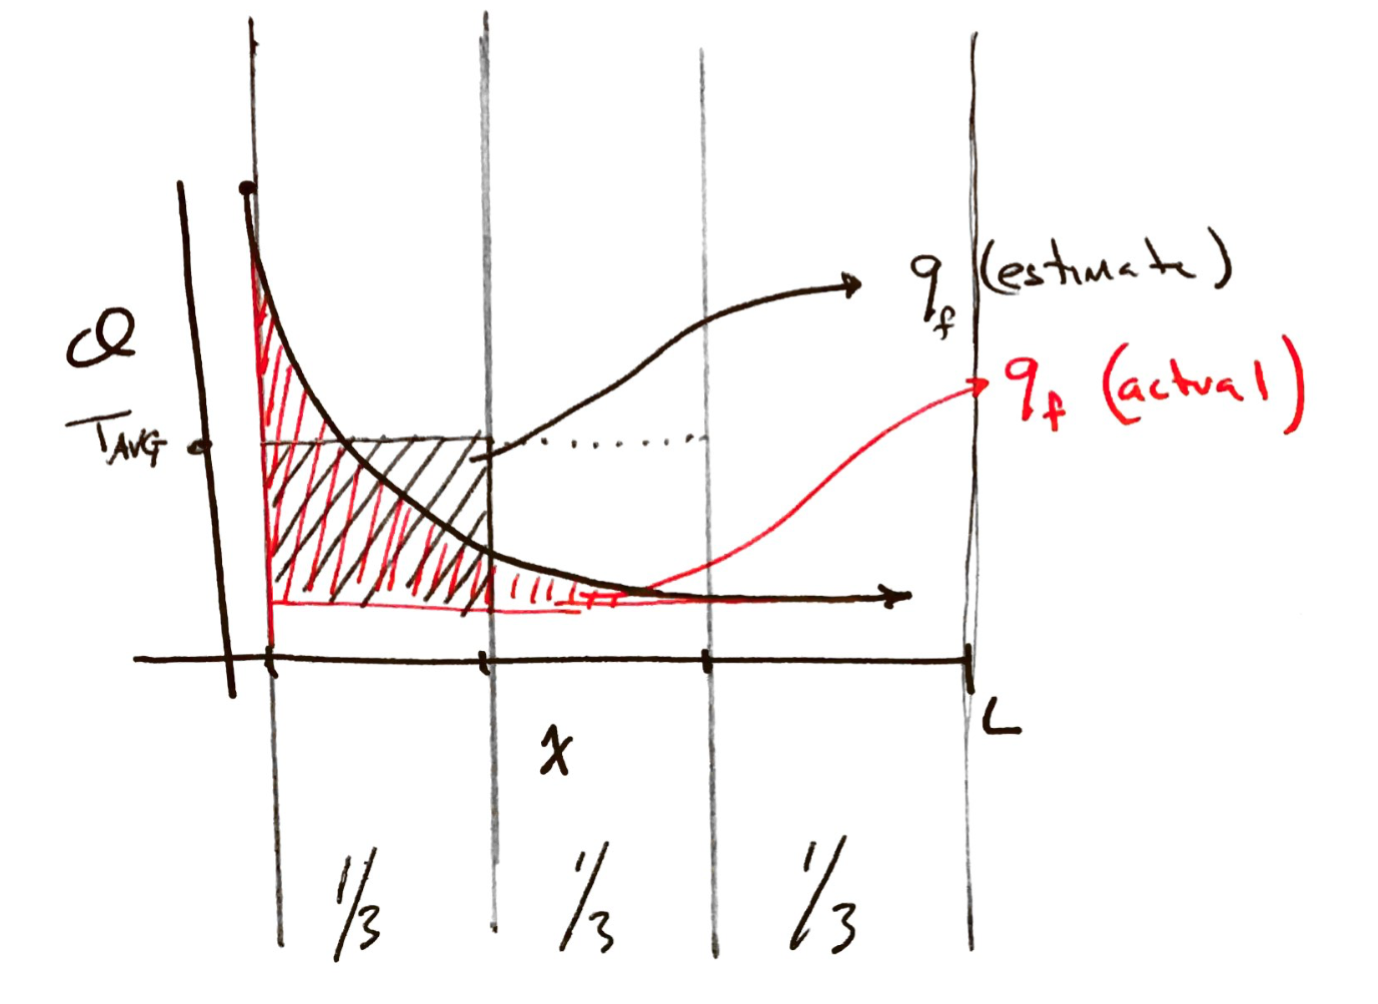 q_f (estimate)
Q
q_f (actual)
T_AVG
L
x
1/3 1/3 1/3